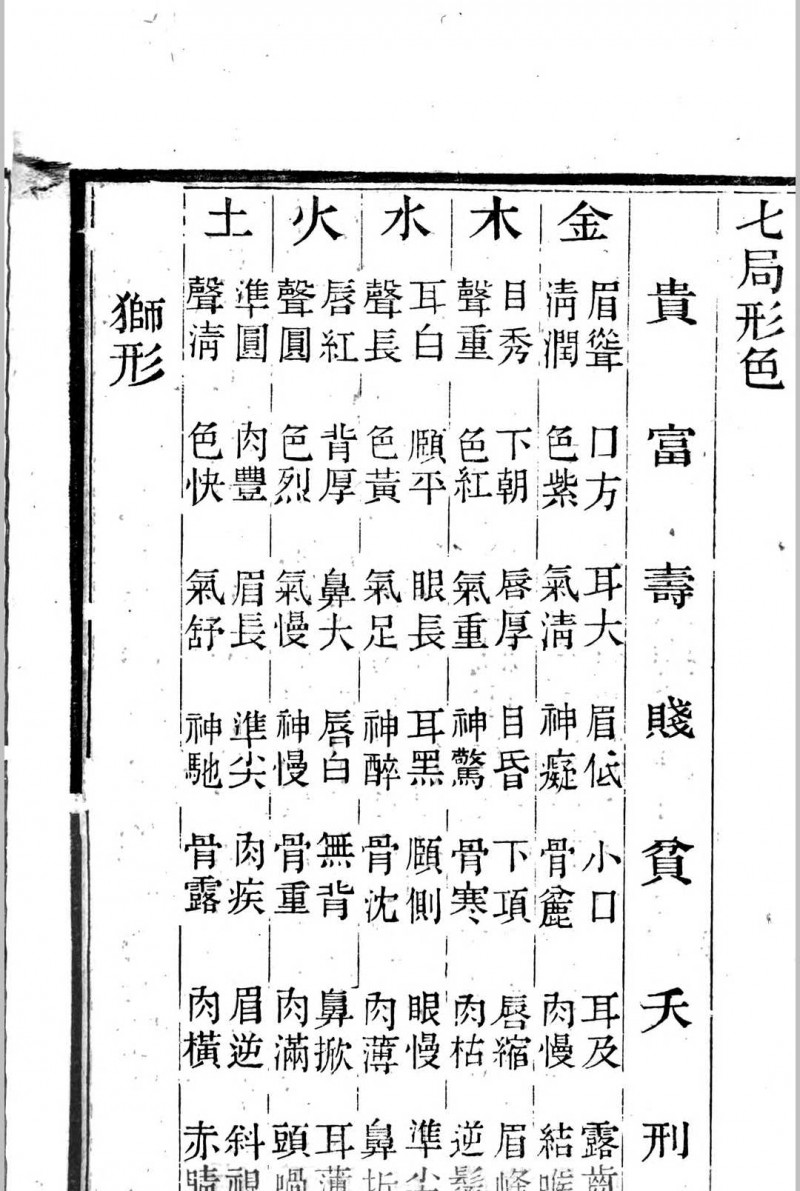 七局形色
貴 富 壽 賤 貧 夭 刑
金
眉聳 口方 耳大 眉低 小口 耳及 露齒
清潤 色紫 氣清 神癡 骨麄 肉慢 結喉
木
目秀 下朝 唇厚 目昏 下項 唇縮 眉峰
聲重 色紅 氣重 神驚 骨寒 肉枯 逆髮
水
耳白 頤平 眼長 耳黑 頤側 眼慢 準尖
聲長 色黃 氣足 神醉 骨沈 肉薄 鼻折
火
唇紅 背厚 鼻大 唇白 無背 鼻掀 耳薄
聲圓 色烈 氣慢 神慢 骨重 肉滿 頭
土
準圓 肉豐 眉長 準尖 肉疾 眉逆 斜視
聲清 色快 氣舒 神馳 骨露 肉橫 赤睛
獅形